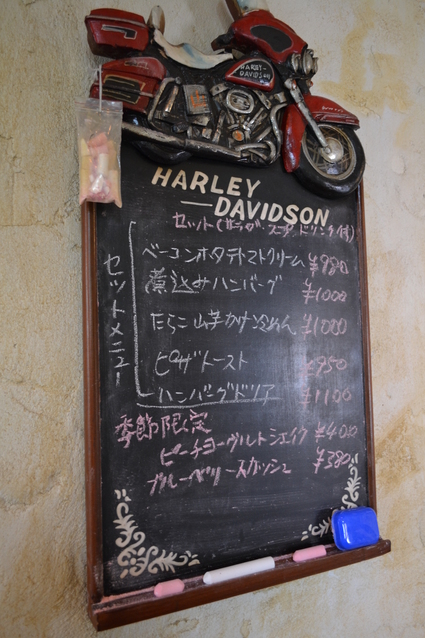 HARLEY-
DAVIDSON
HARLEY
—DAVIDSON
セット(サラダ スープ ドリンク付)
セットメニュー
ベーコンホタテトマトクリーム ¥980
煮込みハンバーグ ¥1000
たらこ山芋かけ冷めん ¥1000
ピザトースト ¥950
ハンバーグドリア ¥1100
季節限定
ピーチヨーグルトシェイク ¥400
ブルーベリースカッシュ ¥380